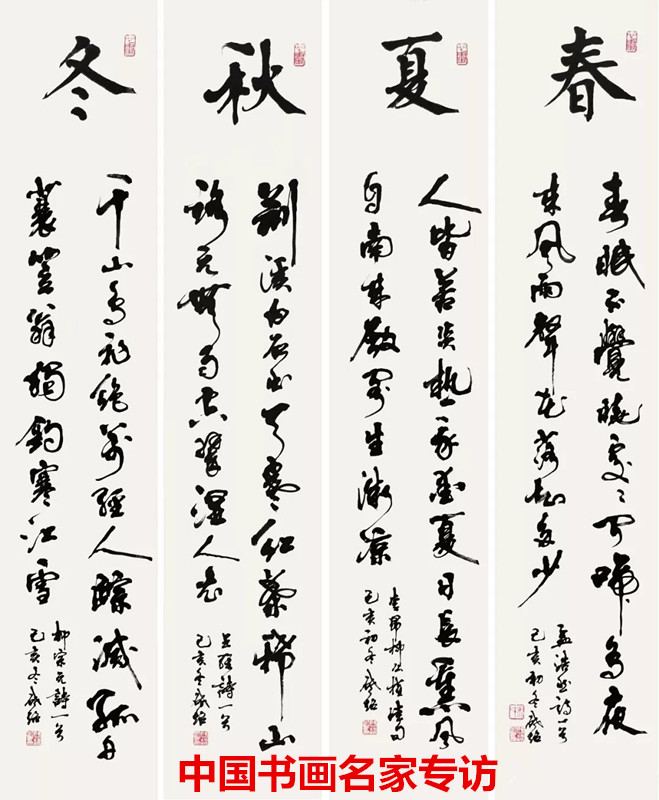 春
春眠不覺曉處々聞啼鳥夜
来風雨聲花落知多少
孟浩然詩一首
己亥初冬
夏
人皆苦炎熱我愛夏日長熏風
自南来殿閣生微凉
李昂柳公權
己亥初冬
秋
荆溪白石出天寒紅葉稀山
路元無雨空翠湿人衣
王維詩一首
己亥冬
冬
千山鳥飛絕萬徑人踪滅孤舟
蓑笠翁獨釣寒江雪
柳宗元詩一首
己亥冬
中国书画名家专访